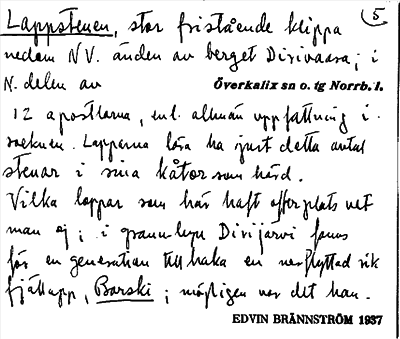 Lappstenen, stor fristående klippa (5
nedom NV. änden av berget Dirivaara; i
N. delen av Överkalix sn o. tg Norrb. l.
12 apostlarna, enl. allmän uppfattning i
socknen. Lapparna lära ha just detta antal
stenar i sina kåtor som härd.
Vilka lappar som här haft offerplats vet
man ej; i grannbyn Dirijärvi fanns
för en generation tillbaka en nerflyttad rik
fjällapp, Barski; möjligen var det han.
EDVIN BRÄNNSTRÖM 1937